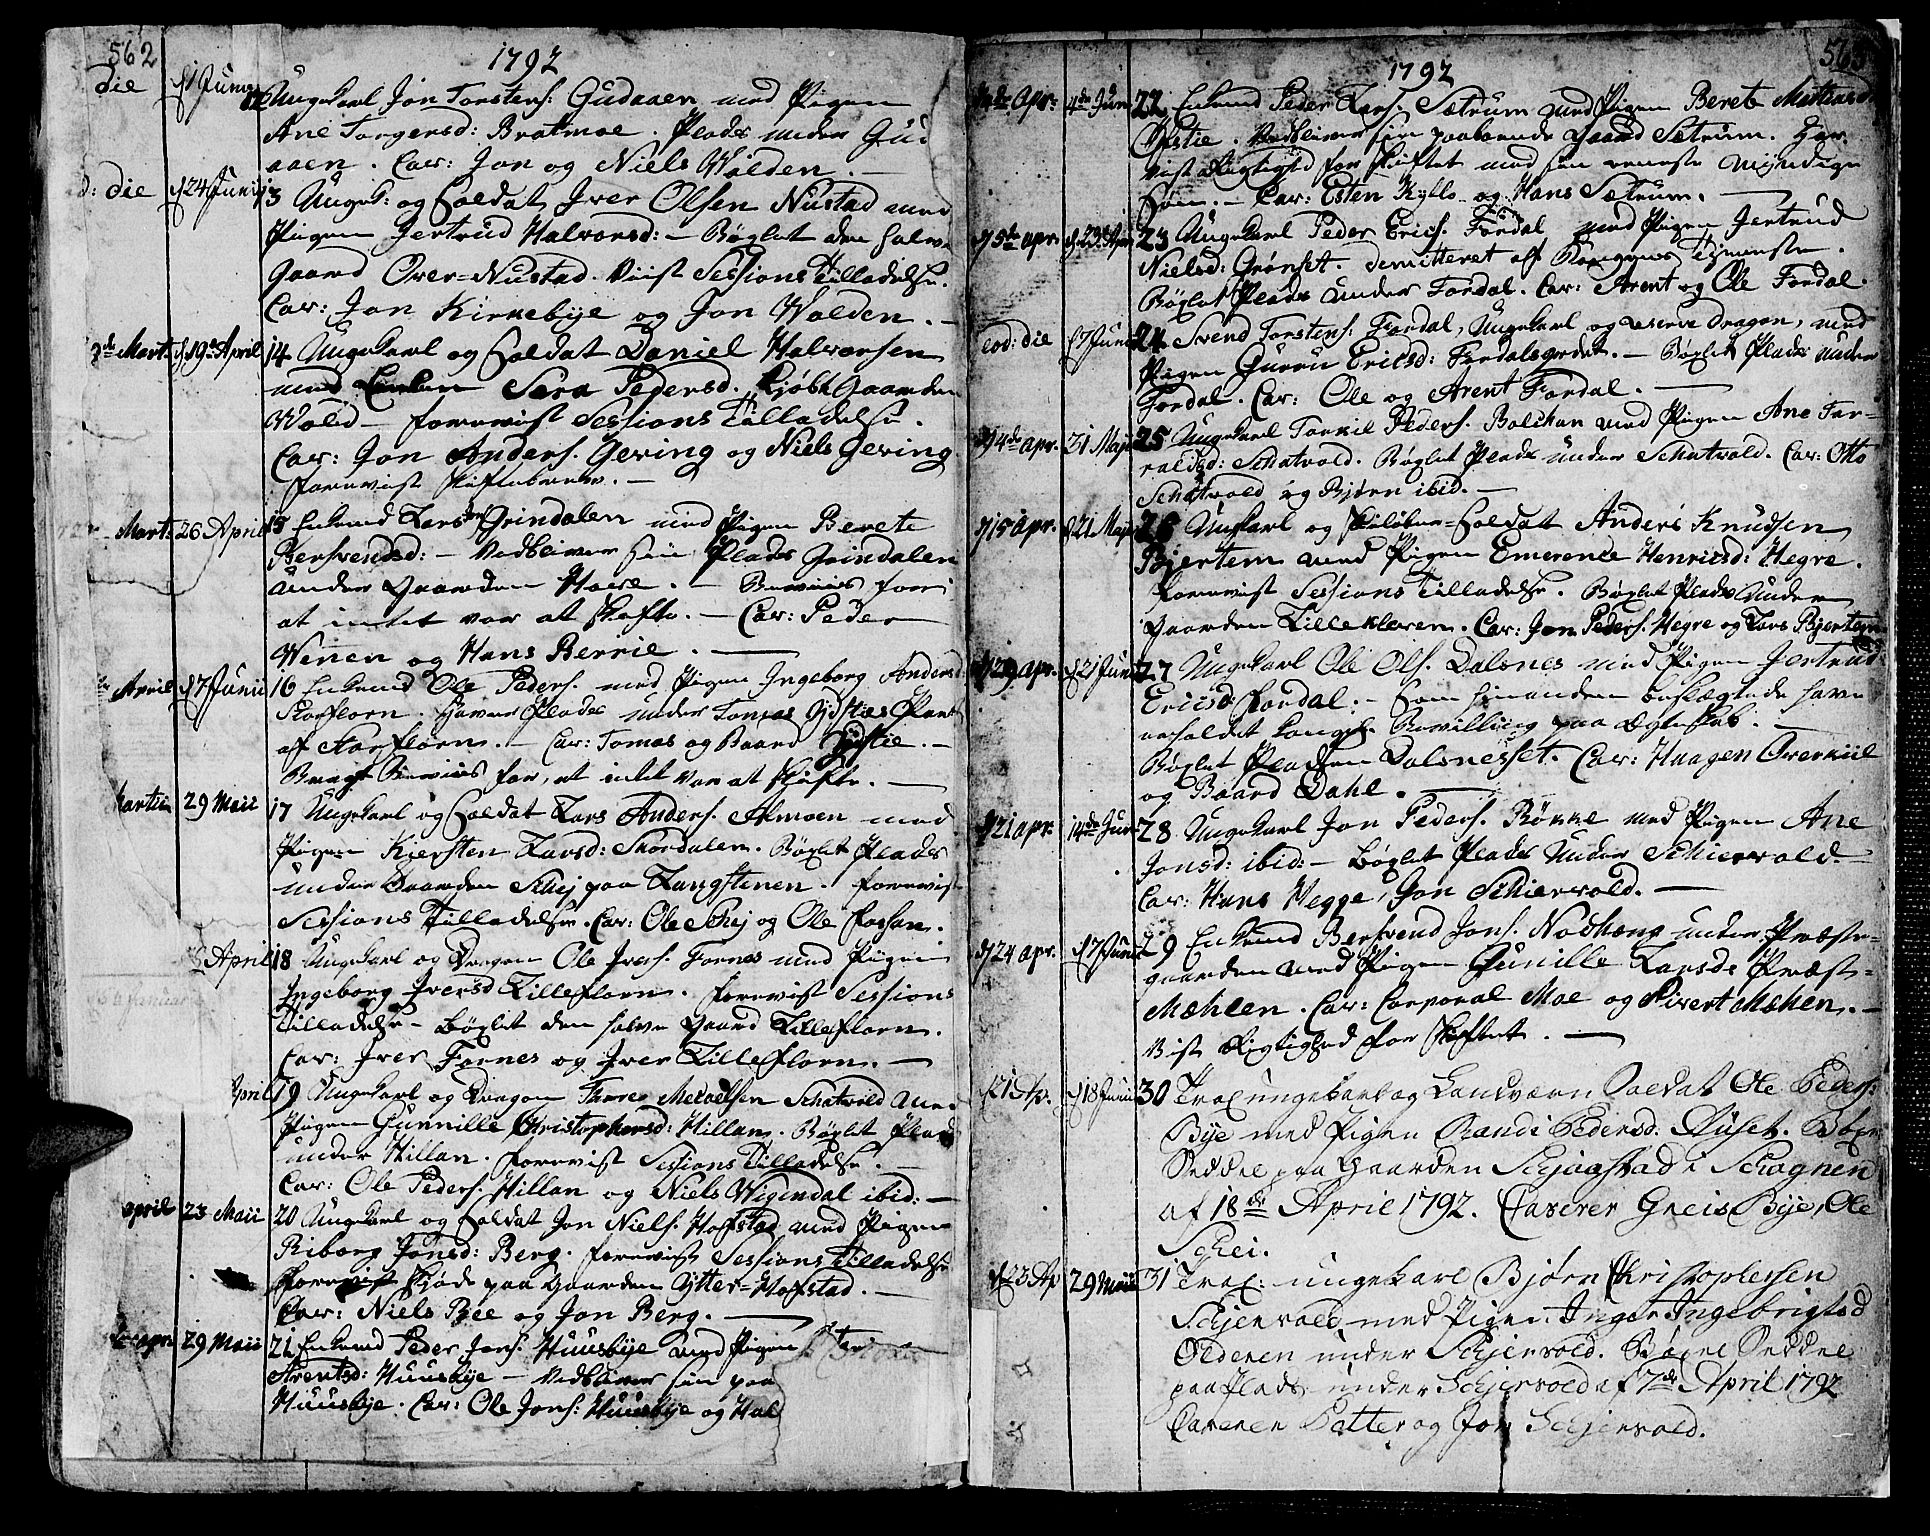 562
1792
die 1 Junii 12 Ungekarl Jon Torstens: Gudaaen med Pigen
Ane Torgersd: Bratmoe. Plads under Gud
aaen. Cav: Jon og Niels Wolden. —
die 24 Junii 13 Ungek: og Soldat Iver Olsen Nustad med
Pigen Jertrud Halvorsd: — Bøglet den halve
Gaard Over-Nustad. Viist Sessions Tilladelse.
Cav: Jon Kirkebye og Jon Wolden. —
Mart: 19 April 14 Ungekarl og Soldat Daniel Halvorsen
med Enken Sera Pedersd. Kjøbt Gaarden
Wold — forevist Sessions Tilladelse.
Cav: Jon Anders. Gering og Niels Gering
forevist Skiftebrev. —
Mart: 26 April 15 Enkemd Lars Grindalen med Pigen Berete
Bersvendsd: — Vedbliver sin Plads Grindalen
under Gaarden Havre. — Beviis for
at intet var at skifte. — Cav: Peder
Wenen og Hans Berrie. —
April 17 Junii 16 Enkemd Ole Peders. med Pigen Ingeborg Andersd:
Storflorn. Haver Plads under Tomas Hofstie Part
af Storflorn. — Cav: Tomas og Baard —
Bragt Beviis for, at intet var at skifte. —
Martii 29 Maii 17 Ungekarl og Soldat Lars Anders. Almoen med
Pigen Kjersten Larsd: Skordalen. Bøglet Plads
under Gaarden Schej paa Langstenen. forevist
Sessions Tilladelse. Cav: Ole Schej og Ole Fossan.
April 18 Ungekarl og Dragon Ole Ivers. Fornes med Pigen
Ingeborg Iversd Lilleflorn. forevist Sessions
Tilladelse — Bøglet den halve Gaard Lilleflorn.
Cav: Iver Fornes og Iver Lilleflorn. —
April 19 Ungekarl og Dragon Thore Mekaelsen Schatvold med
Pigen Gunnille Christophersd: Hillan. Bøglet Plads
under Hillan. forevist Sessions Tilladelse. —
Cav: Ole Peders. Hillan og Niels Wigendal ibid: —
april 23 Maii 20 Ungekarl og Soldat Jon Niels. Hofstad med Pigen
Riborg Jonsd: Berg. forevist Sessions Tilladelse
forevist Skjøde paa Gaarden Ytter-Hofstad. —
Cav: Niels Ree og Jon Berg. —
apr 29 Maii 21 Enkemd Peder Jons. Huusbye med Pigen
Arentsd: Huusbye — Vedbliver sin paa
Huusbye. Cav: Ole Jons: Huusbye og Hal
563
1792
Apr: 4de Jun 22 Enkemd Peder Lars. Sætrum med Pigen Beret Mathiasd
Opstie. Vedbliver sin paaboende Gaard Sætrum. Har
viist Rigtighed for Skiftet med sin eneste myndige
Søn. — Cav: Esten Kyllo og Hans Sætrum. —
15de apr. 23 Apr 23 Ungekarl Peder Erics. Fordal med Pigen Jertrud
Nielsd: Grønset. Demitteret af Kongens Tjeneste.
Bøglet Plads under Fordal. Cav: Arent og Ole Fordal.
eod: die 17 Junii 24 Svend Torstens: Fordal, Ungekarl og reserve Dragon, med
Pigen Gurru Ericsd: Fordalsgrdet. — Bøglet Plads under
Fordal. Cav: Ole og Arent Fordal. —
14de apr. 21 Maji 25 Ungekarl Torkil Peders. Bolekan med Pigen Ane Tor-
raldsd: Schatvold. Bøglet Plads under Schatvold. Cav: Otto
Schatvold og Bjørn ibid. —
15 apr. 21 Maji 26 Ungkarl og Skiløber-Soldat Anders Knudsen
Bjertem med Pigen Emerence Henricsd: Hegre.
forevist Sessions Tilladelse. Bøglet Plads under
Gaarden Lilleklæven. Cav: Jon Peders. Hegre og Lars Bjertem
29 apr. 21 Junii 27 Ungekarl Ole Ols. Dalsnes med Pigen Jertrud
Ericsd Fordal: — Som hinanden beslægtede have
erholdet kongel. Bevilling paa Egteskab. —
Bøglet Pladsen Dalsnesset. Cav: Haagen Overkiil
og Baard Dahl. —
21 apr. 14de Jun 28 Ungekarl Jon Peders. Røkke med Pigen Ane
Jonsd: ibid: — Bøglet Plads under Schiervold
Cav: Hans Vegge, Jon Schiervold. —
24 apr. 17 Junii 29 Enkemd Bersvend Jons. Nodhang under Præste-
gaarden med Pigen Gunille Larsd. Præst-
Mæhlen. Cav: Corporal Moe og Sivert Mæhen. —
Vist Rigtighed for Skiftet. —
21 Ap. 18 Junii 30 Trox ungekarl og Landværn Soldat Ole Peders:
Bye med Pigen Randi Pedersd. Auset. Boxe
Seddel paa Gaarden Schjaastad i Schognen
af 18de April 1792. Caverer Greis Bye, Ole
Schei.
23 Ap 29 Maii 31 Trox: ungekarl Bjørn Christophersen
Schjervold med Pigen Inger Ingebrigtsd
Olderen under Schjervold. Boxel Seddel
paa Plads under Schjervold af 7de April 1792
Caverer Lotter og Jon Schjervold.